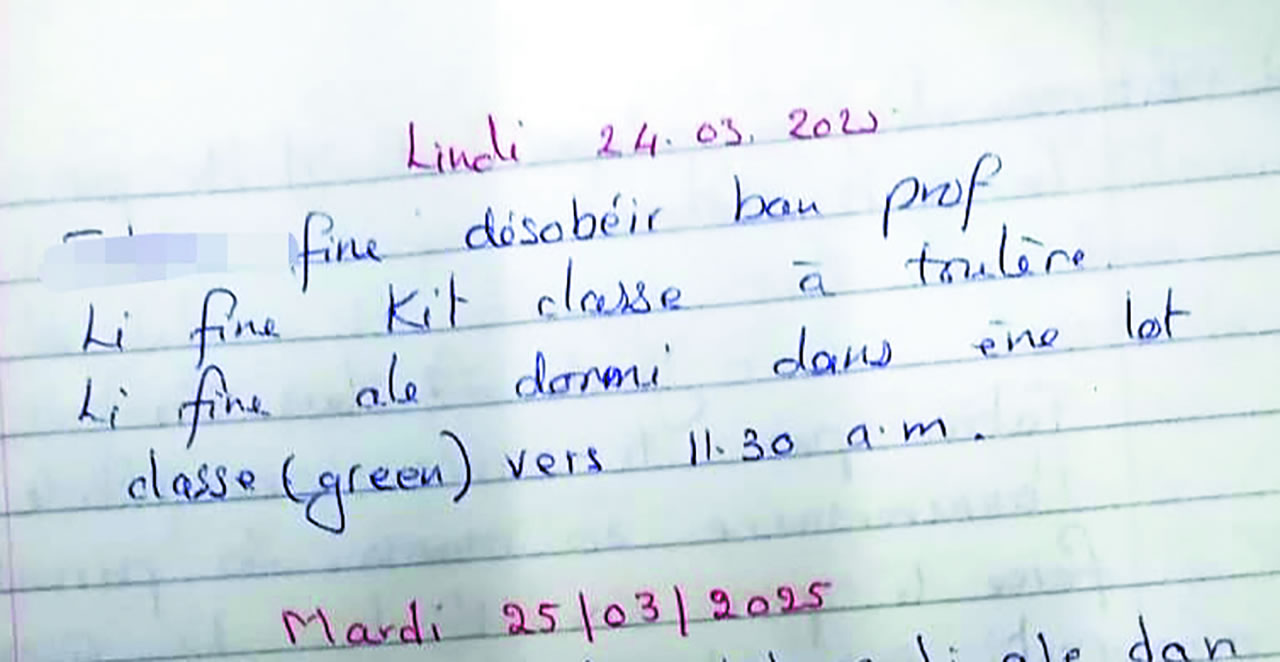 Lindi 24.03.202
fine désobéir ban prof
Li fine kit classe à toulère
Li fine ale dormi dans ène lot
classe (green) vers 11.30 a.m.
Mardi 25/03/2025
li ale dan